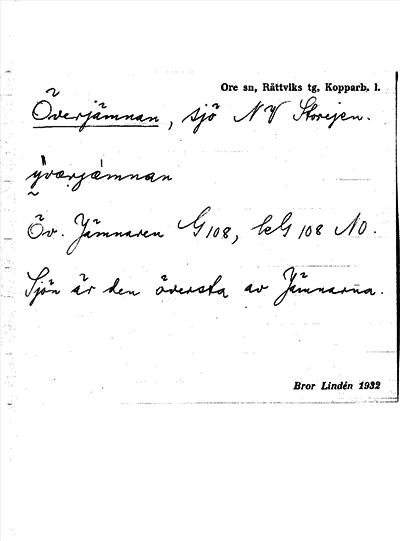 Ore sn, Rättviks tg, Kopparb. l.
Överjämnan, sjö NV Storejen.
yværjämnan
Öv. Jämnaren G 108, kG 108 NO.
Sjön är den översta av Jämnarna.
Bror Lindén 1932